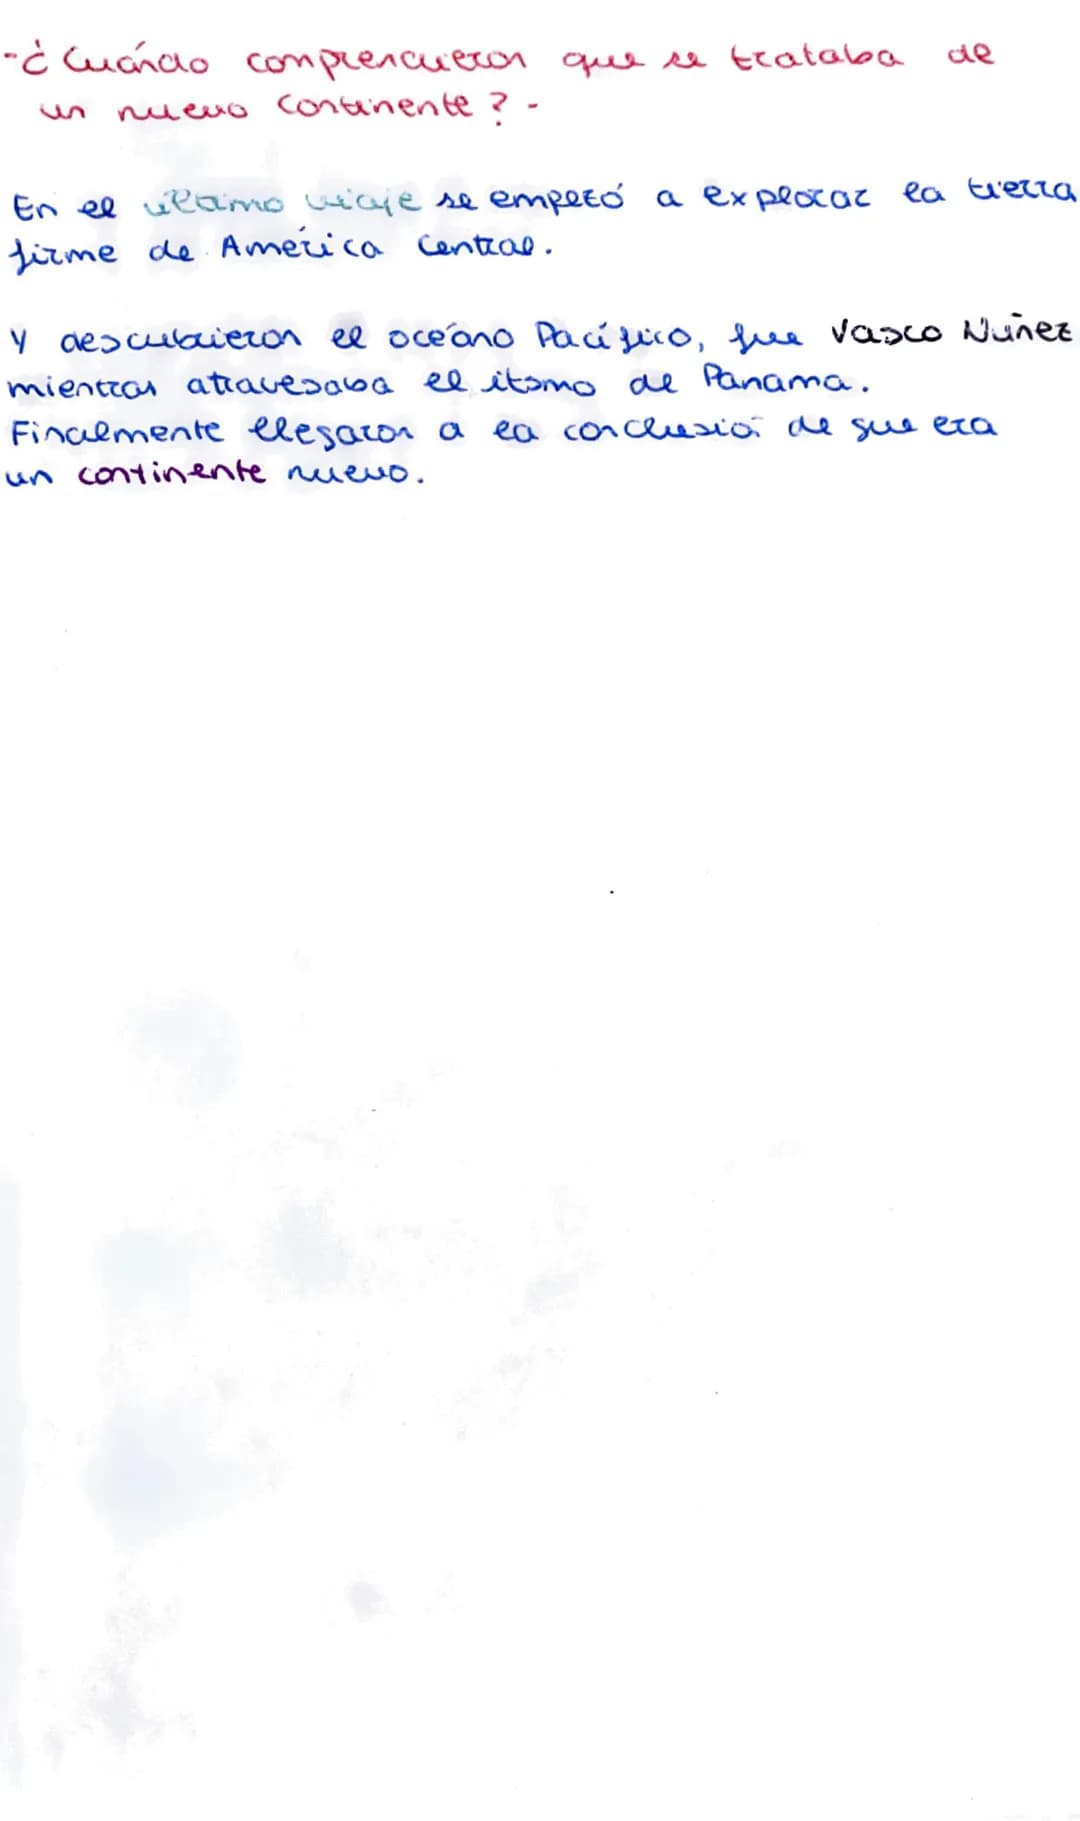 -¿Cuándo comprendieron que se trataba de
un nuevo continente?-
En el último viaje se empezó a explorar la tierra
firme de América Central.
Y descubrieron el océano Pacífico, fue Vasco Nuñez
mientras atravesaba el itsmo de Panama.
Finalmente llegaron a la conclusión de que era
un continente nuevo.